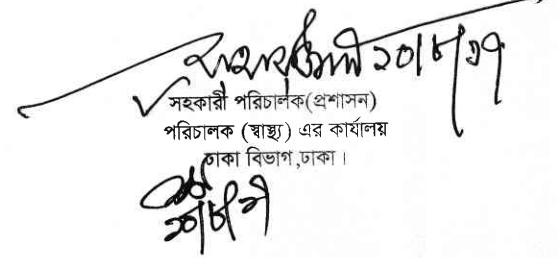 ২০/৮/১৭
সহকারী পরিচালক(প্রশাসন)
পরিচালক (স্বাস্থ্য) এর কার্যালয়
ঢাকা বিভাগ,ঢাকা।